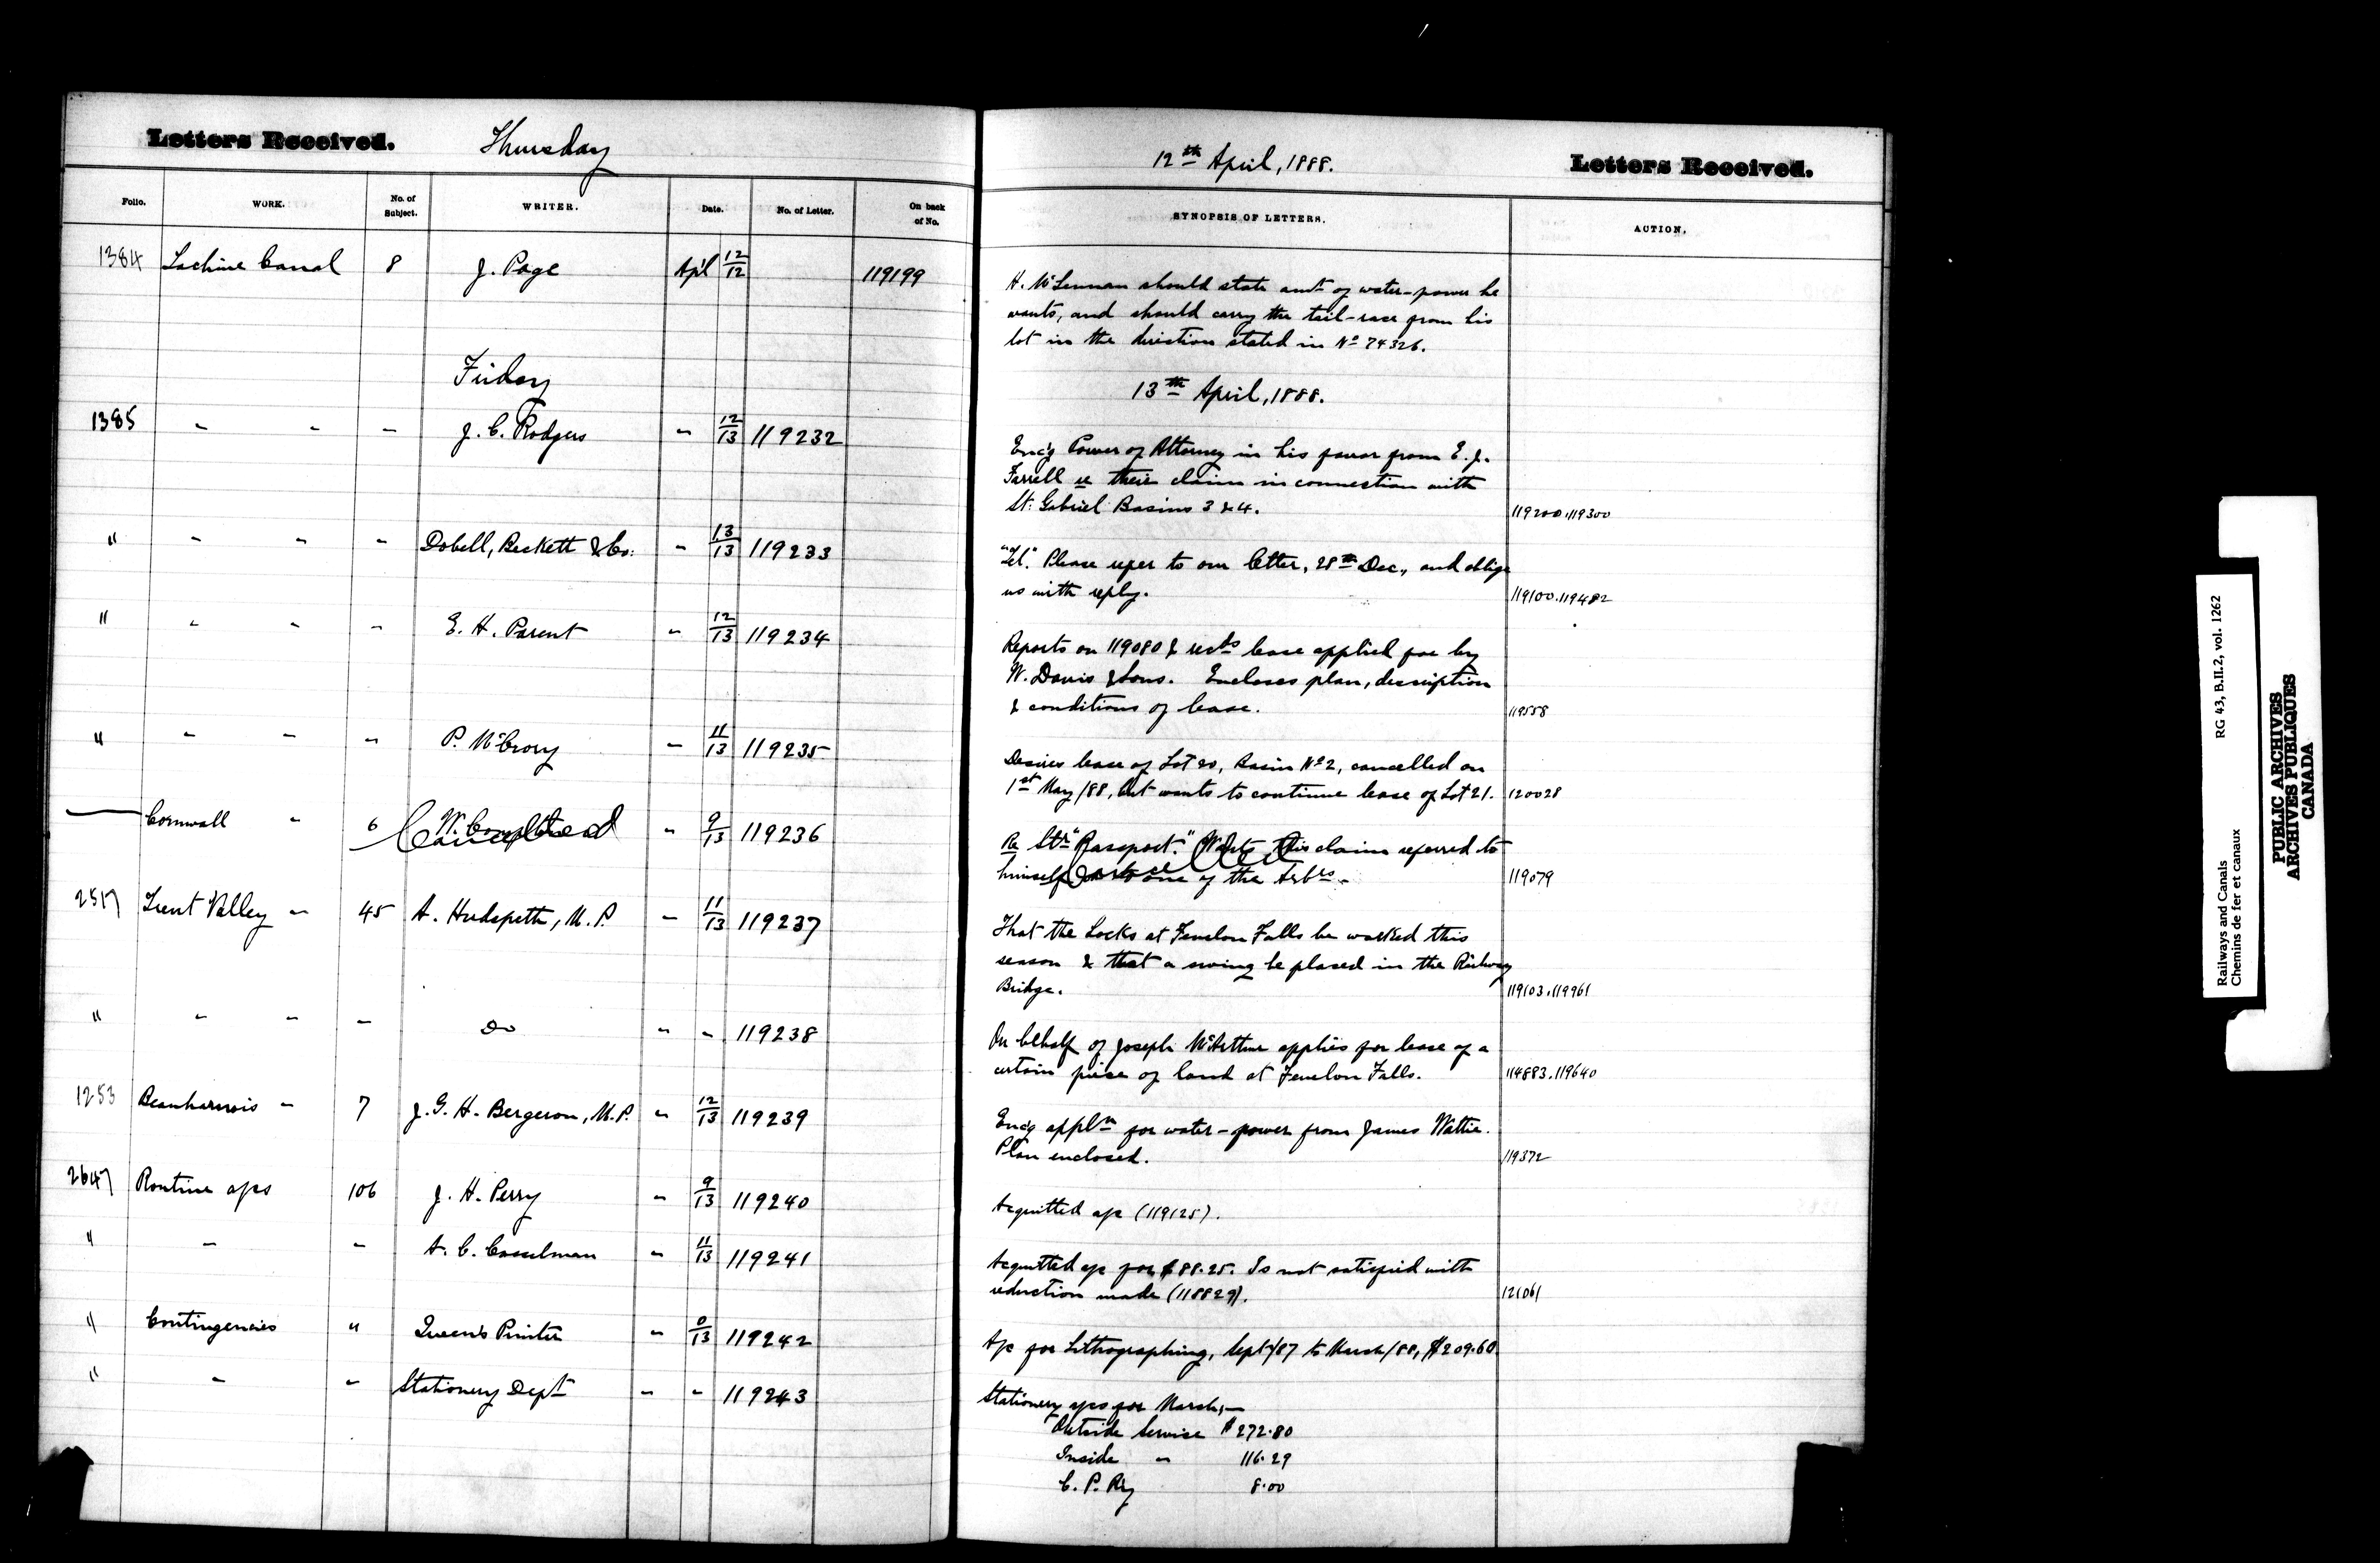 Letters Received. Thursday 12th April, 1888. Letters Received.
Folio. WORK. No. of Subject. WRITER. Date. No. of Letter. On back of No. SYNOPSIS OF LETTERS. ACTION.
1384 Lachine Canal 8 J. Page Apl 12/12 119199
H. McLennan should state amt of water-power he
wants, and should carry the tail-race from his
lot in the direction stated in No 74326.
Friday 13th April, 1888.
1385 " " " J. C. Rodgers " 12/13 119232
Enc'g Power of Attorney in his favor from E. J.
Farrell re their claim in connection with
St. Gabriel Basins 3 & 4. 119200.119300
" " " " Dobell, Beckett & Co. " 13/13 119233
"Tel." Please refer to our letter, 28th Dec., and oblige
us with reply. 119100.119482
" " " " E. H. Parent " 12/13 119234
Reports on 119080 & recds lease applied for by
W. Davis & Sons. Encloses plan, description
& conditions of lease. 119558
" " " " P. McCrory " 11/13 119235
Desires lease of Lot 20, Basin No 2, cancelled on
1st May/88, but wants to continue lease of Lot 21. 120028
Cornwall " 6 W. Cancelled " 9/13 119236
Re Str "Passport." Wants this claim referred to
himself or to one of the Arbrs. 119079
2517 Trent Valley " 45 A. Hudspeth, M.P. " 11/13 119237
That the Locks at Fenelon Falls be worked this
season & that a swing be placed in the Railway
Bridge. 119103.119961
" " " " Do " " 119238
On behalf of Joseph McArthur applies for lease of a
certain piece of land at Fenelon Falls. 114883.119640
1253 Beauharnois " 7 J. G. H. Bergeron, M.P. " 12/13 119239
Enc'g appln for water-power from James Wattie.
Plan enclosed. 119372
2647 Routine a/cs 106 J. H. Perry " 9/13 119240
Acquitted a/c (119125).
" " " A. C. Casselman " 11/13 119241
Acquitted a/c for $88.25. Is not satisfied with
reduction made (118829). 121061
" Contingencies " Queen's Printer " 0/13 119242
A/c for Lithographing, Sept/87 to March/88, $209.60
" " " Stationery Dept " " 119243
Stationery a/cs for March,—
Outside Service $272.80
Inside " 116.29
C. P. Ry 8.00
Railways and Canals RG 43, B.II.2, vol. 1262
Chemins de fer et canaux
PUBLIC ARCHIVES
ARCHIVES PUBLIQUES
CANADA